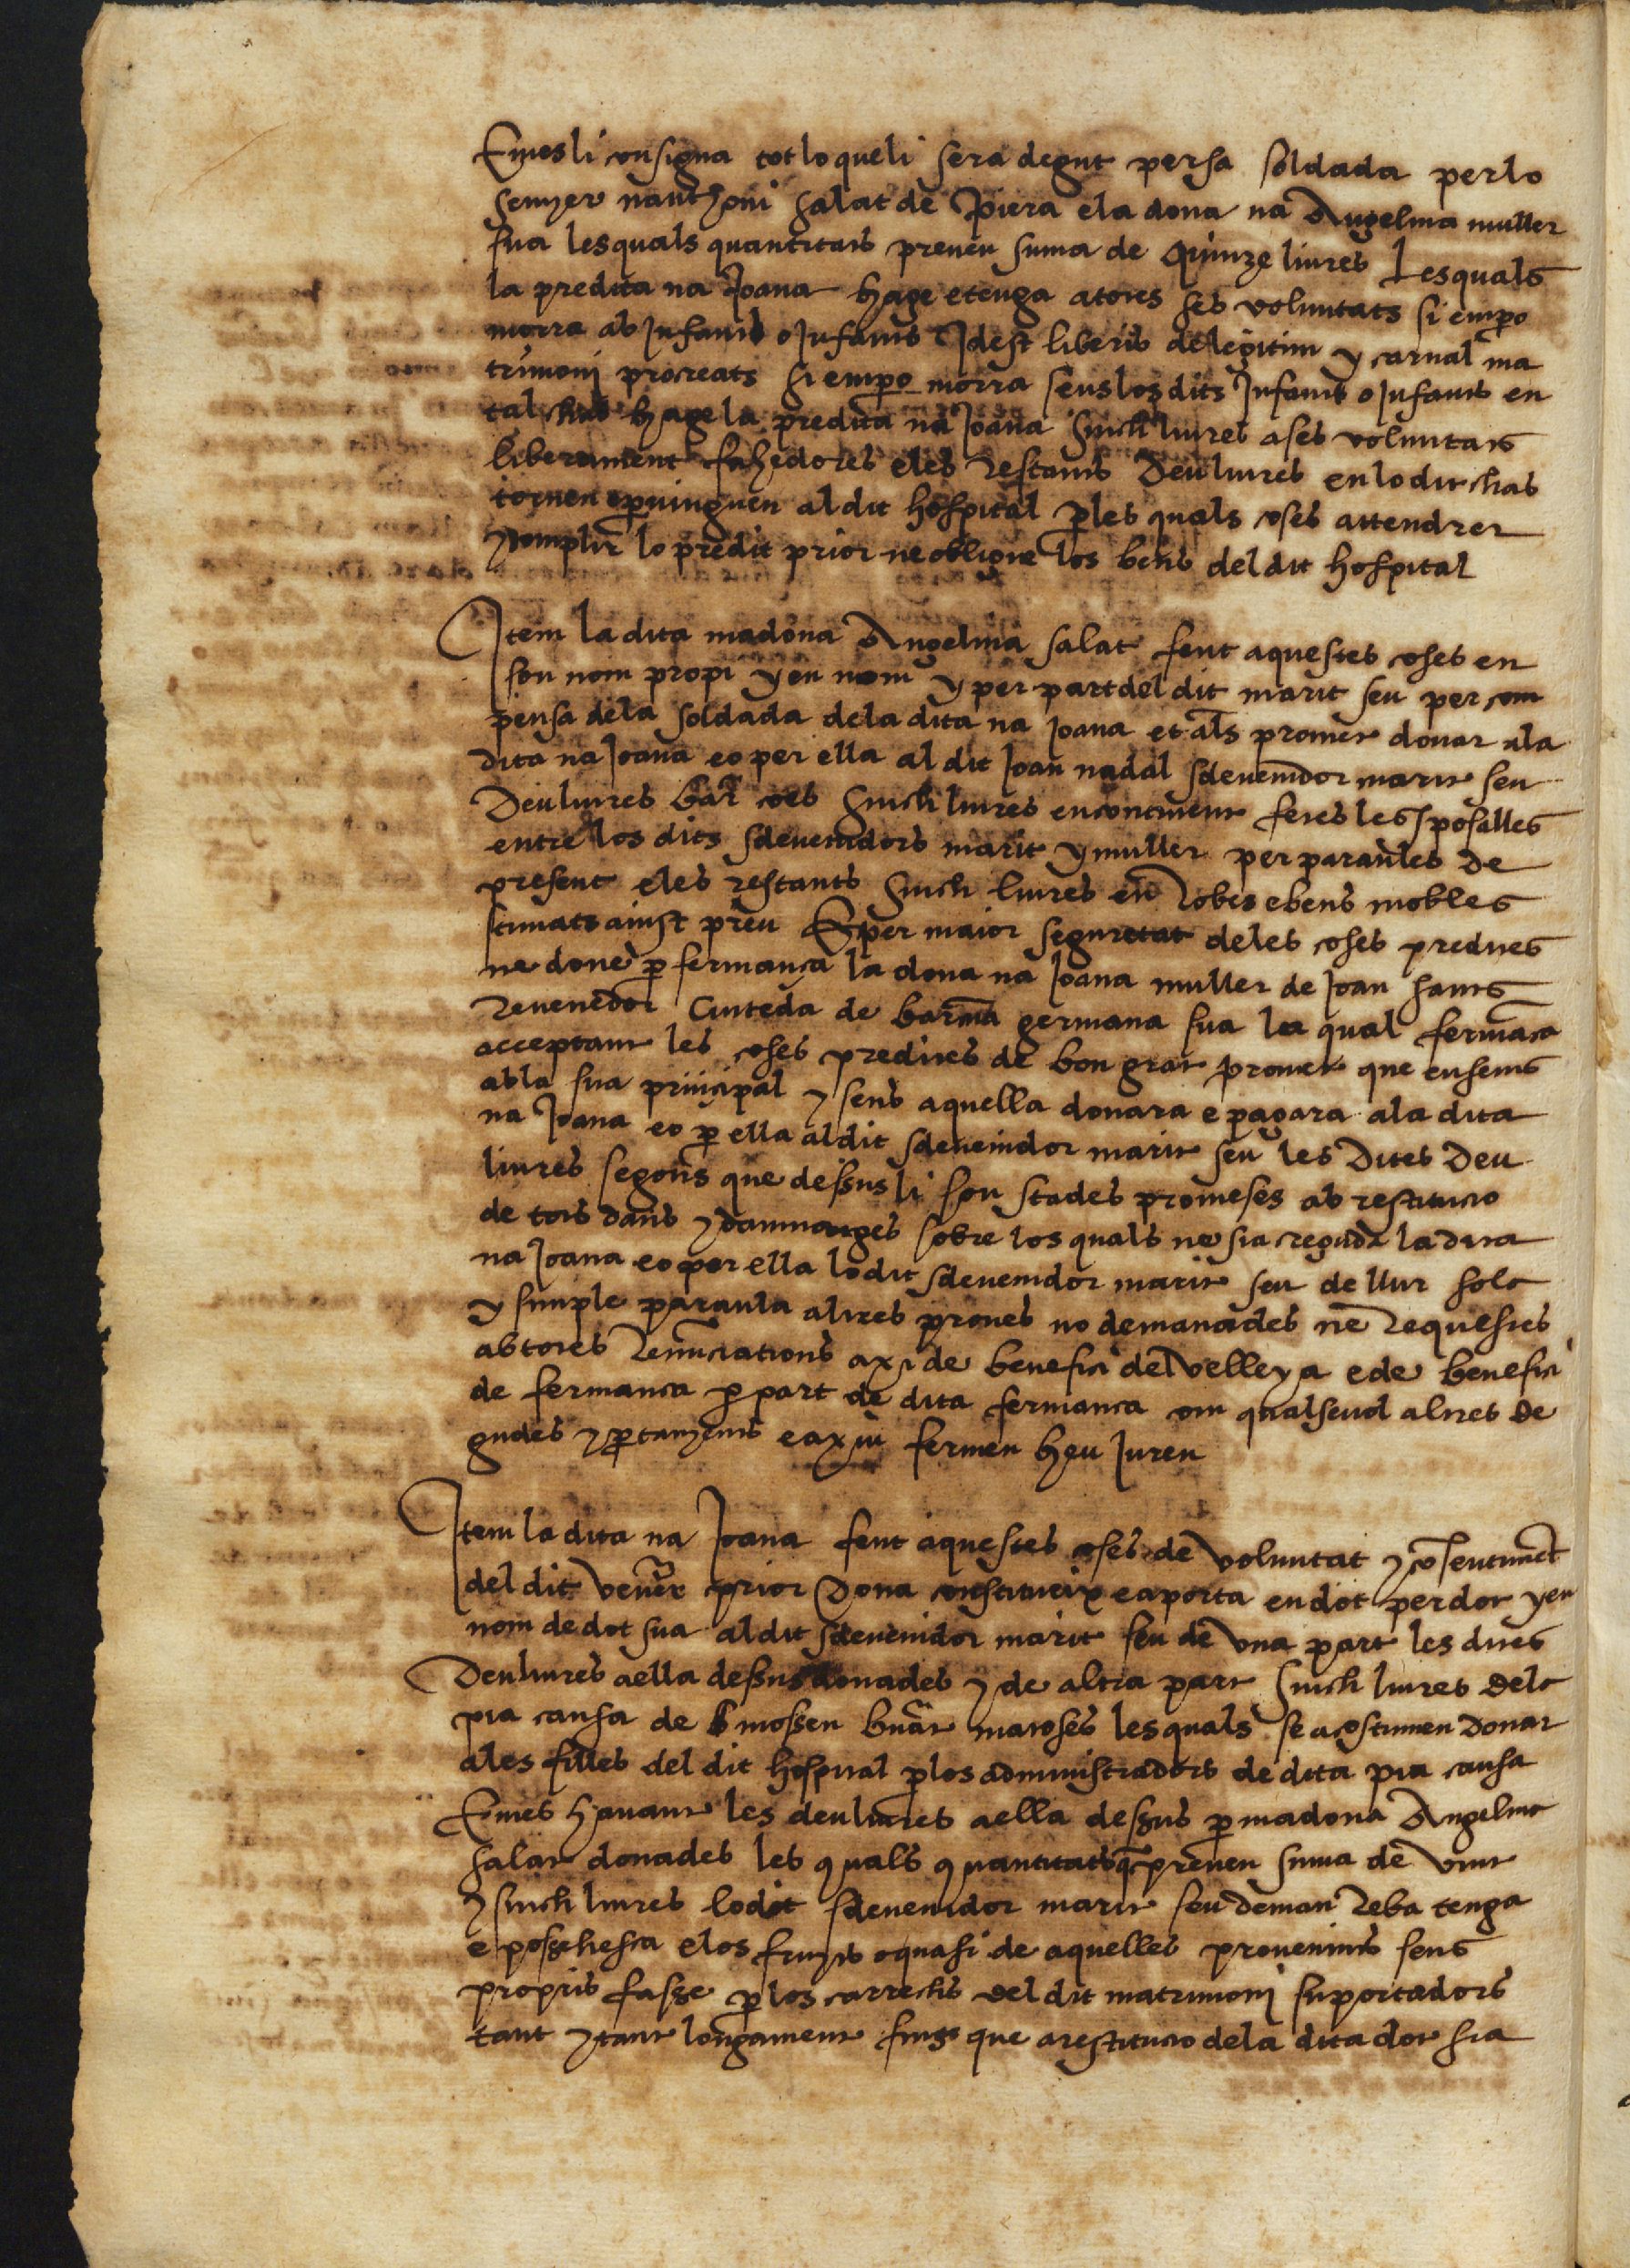 E mes li consigna tot lo que li sera degut per sa soldada per lo
senyer nanthoni salat de Piera e la dona na Angelina muller
sua les quals quantitats prenen suma de Quinze liures Les quals
la predita na Joana hage e tenga a totes ses voluntats si empo
morra ab Infant o Infants Idest liberis de legitim y carnal ma
trimonj procreats Si empo morra sens los dits Infant o Infants en
tal chas hage la predita na Joana Sinch liures a ses voluntats
liberament fahedores e les restants Deu liures en lo dit chas
tornen e pervinguen al dit hospital ples quals coses attendrer
y complir lo predit prior ne obligue los bens del dit hospital
Item la dita madona Angelina salat fent aquestes coses en
son nom propi y en nom y per part del dit marit seu per com
pensa de la soldada de la dita na Joana et als promet donar a la
dita na Joana eo per ella al dit Joan nadal sdevenidor marit seu
Deu liures bar ço es Sinch liures encontinent fetes les sposalles
entre los dits sdevenidors marit y muller per paraules de
present e les restants Sinch liures en Robes e bens mobles
stimats a iust preu E per maior seguretat de les coses predites
ne done p fermança la dona na Joana muller de Joan sants
Revenedor Ciuteda de barna germana sua la qual fermaça
acceptant les coses predites de bon grat promet que ensemps
ab la sua principal y sens aquella donara e pagara a la dita
na Joana eo p ella al dit sdevenidor marit seu les Dites Deu
liures segons que dessus li son stades promeses ab restitucio
de tots dans y dampnatges sobre los quals ne sia creguda la dita
na Joana eo per ella lo dit sdevenidor marit seu de llur sola
y simple paraula altres proves no demanades ne Requestes
ab totes Renunciations axi de benefici de Velleya e de benefici
de fermança p part de dita fermança com qualsevol altres De
gudes y ptanyents e axiu fermen heu Juren
Item la dita na Joana fent aquestes coses de voluntat y cosentimet
del dit vener prior Dona constitueix e aporta en dot per dot y en
nom de dot sua al dit sdevenidor marit seu de una part les dites
Deu liures a ella dessus donades y de altra part Sinch liures dela
pia causa de mossen bnat maroses les quals se acostumen Donar
a les filles del dit hospital plos administradors de dita pia causa
E mes havant les deu liures a ella dessus p madona Angelina
salat donades les quals quantitats q prenen suma de vint
y sinch liures lo dit sdevenidor marit seu deman Reba tenga
e possehesca e los fruyts o quasi de aquelles provenints sens
propris fasse plos carrechs del dit matrimonj suportadors
tant y tant longament fins que a restitucio de la dita dot sia